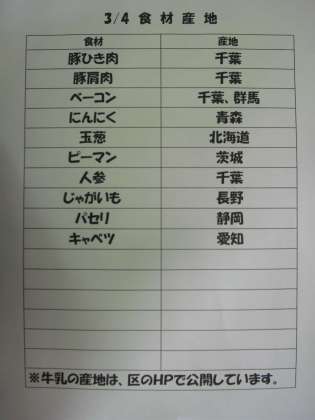 3/4 食材産地
食材 産地
豚ひき肉 千葉
豚肩肉 千葉
ベーコン 千葉、群馬
にんにく 青森
玉葱 北海道
ピーマン 茨城
人参 千葉
じゃがいも 長野
パセリ 静岡
キャベツ 愛知
※牛乳の産地は、区のHPで公開しています。